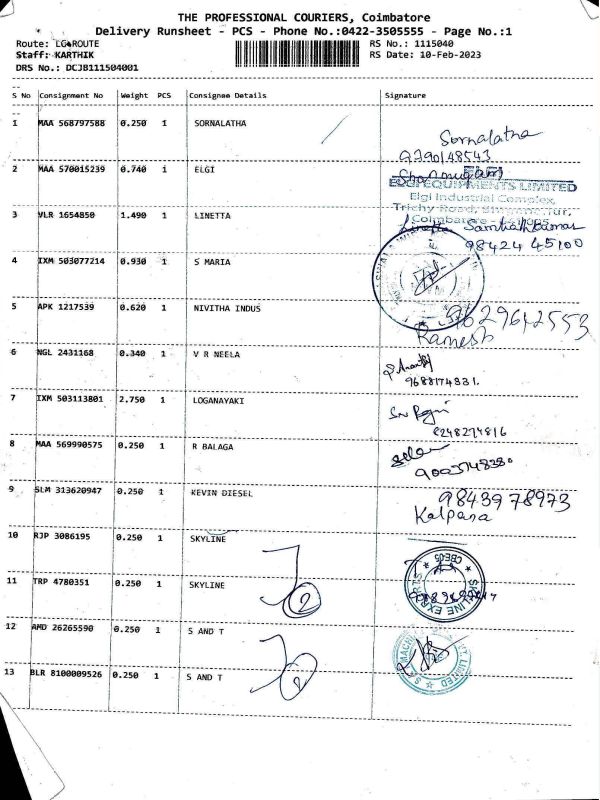 THE PROFESSIONAL COURIERS, Coimbatore
Delivery Runsheet - PCS - Phone No.:0422-3505555 - Page No.:1
Route: LG ROUTE RS No.: 1115040
Staff: KARTHIK RS Date: 10-Feb-2023
DRS No.: DCJB111504001
S No Consignment No Weight PCS Consignee Details Signature
1 MAA 568797588 0.250 1 SORNALATHA
Sornalatha
9790148543
2 MAA 570015239 0.740 1 ELGI
Shanmugam
ELGI EQUIPMENTS LIMITED
Elgi Industrial Complex,
Trichy Road, Singanallur,
Coimbatore - 641005
3 VLR 1654850 1.490 1 LINETTA
Linetta Sampathkumar
98424 45100
4 IXM 503077214 0.930 1 S MARIA
5 APK 1217539 0.620 1 NIVITHA INDUS
9629642553
Ramesh
6 NGL 2431168 0.340 1 V R NEELA
9688174831.
7 IXM 503113801 2.750 1 LOGANAYAKI
8248274816
8 MAA 569990575 0.250 1 R BALAGA
9 SLM 313620947 0.250 1 KEVIN DIESEL
9843978973
Kalpana
10 RJP 3086195 0.250 1 SKYLINE
11 TRP 4780351 0.250 1 SKYLINE
2
SKYLINE EXPORTS
CBE-05
12 AMD 26265590 0.250 1 S AND T
13 BLR 8100009526 0.250 1 S AND T
2
LIMITED